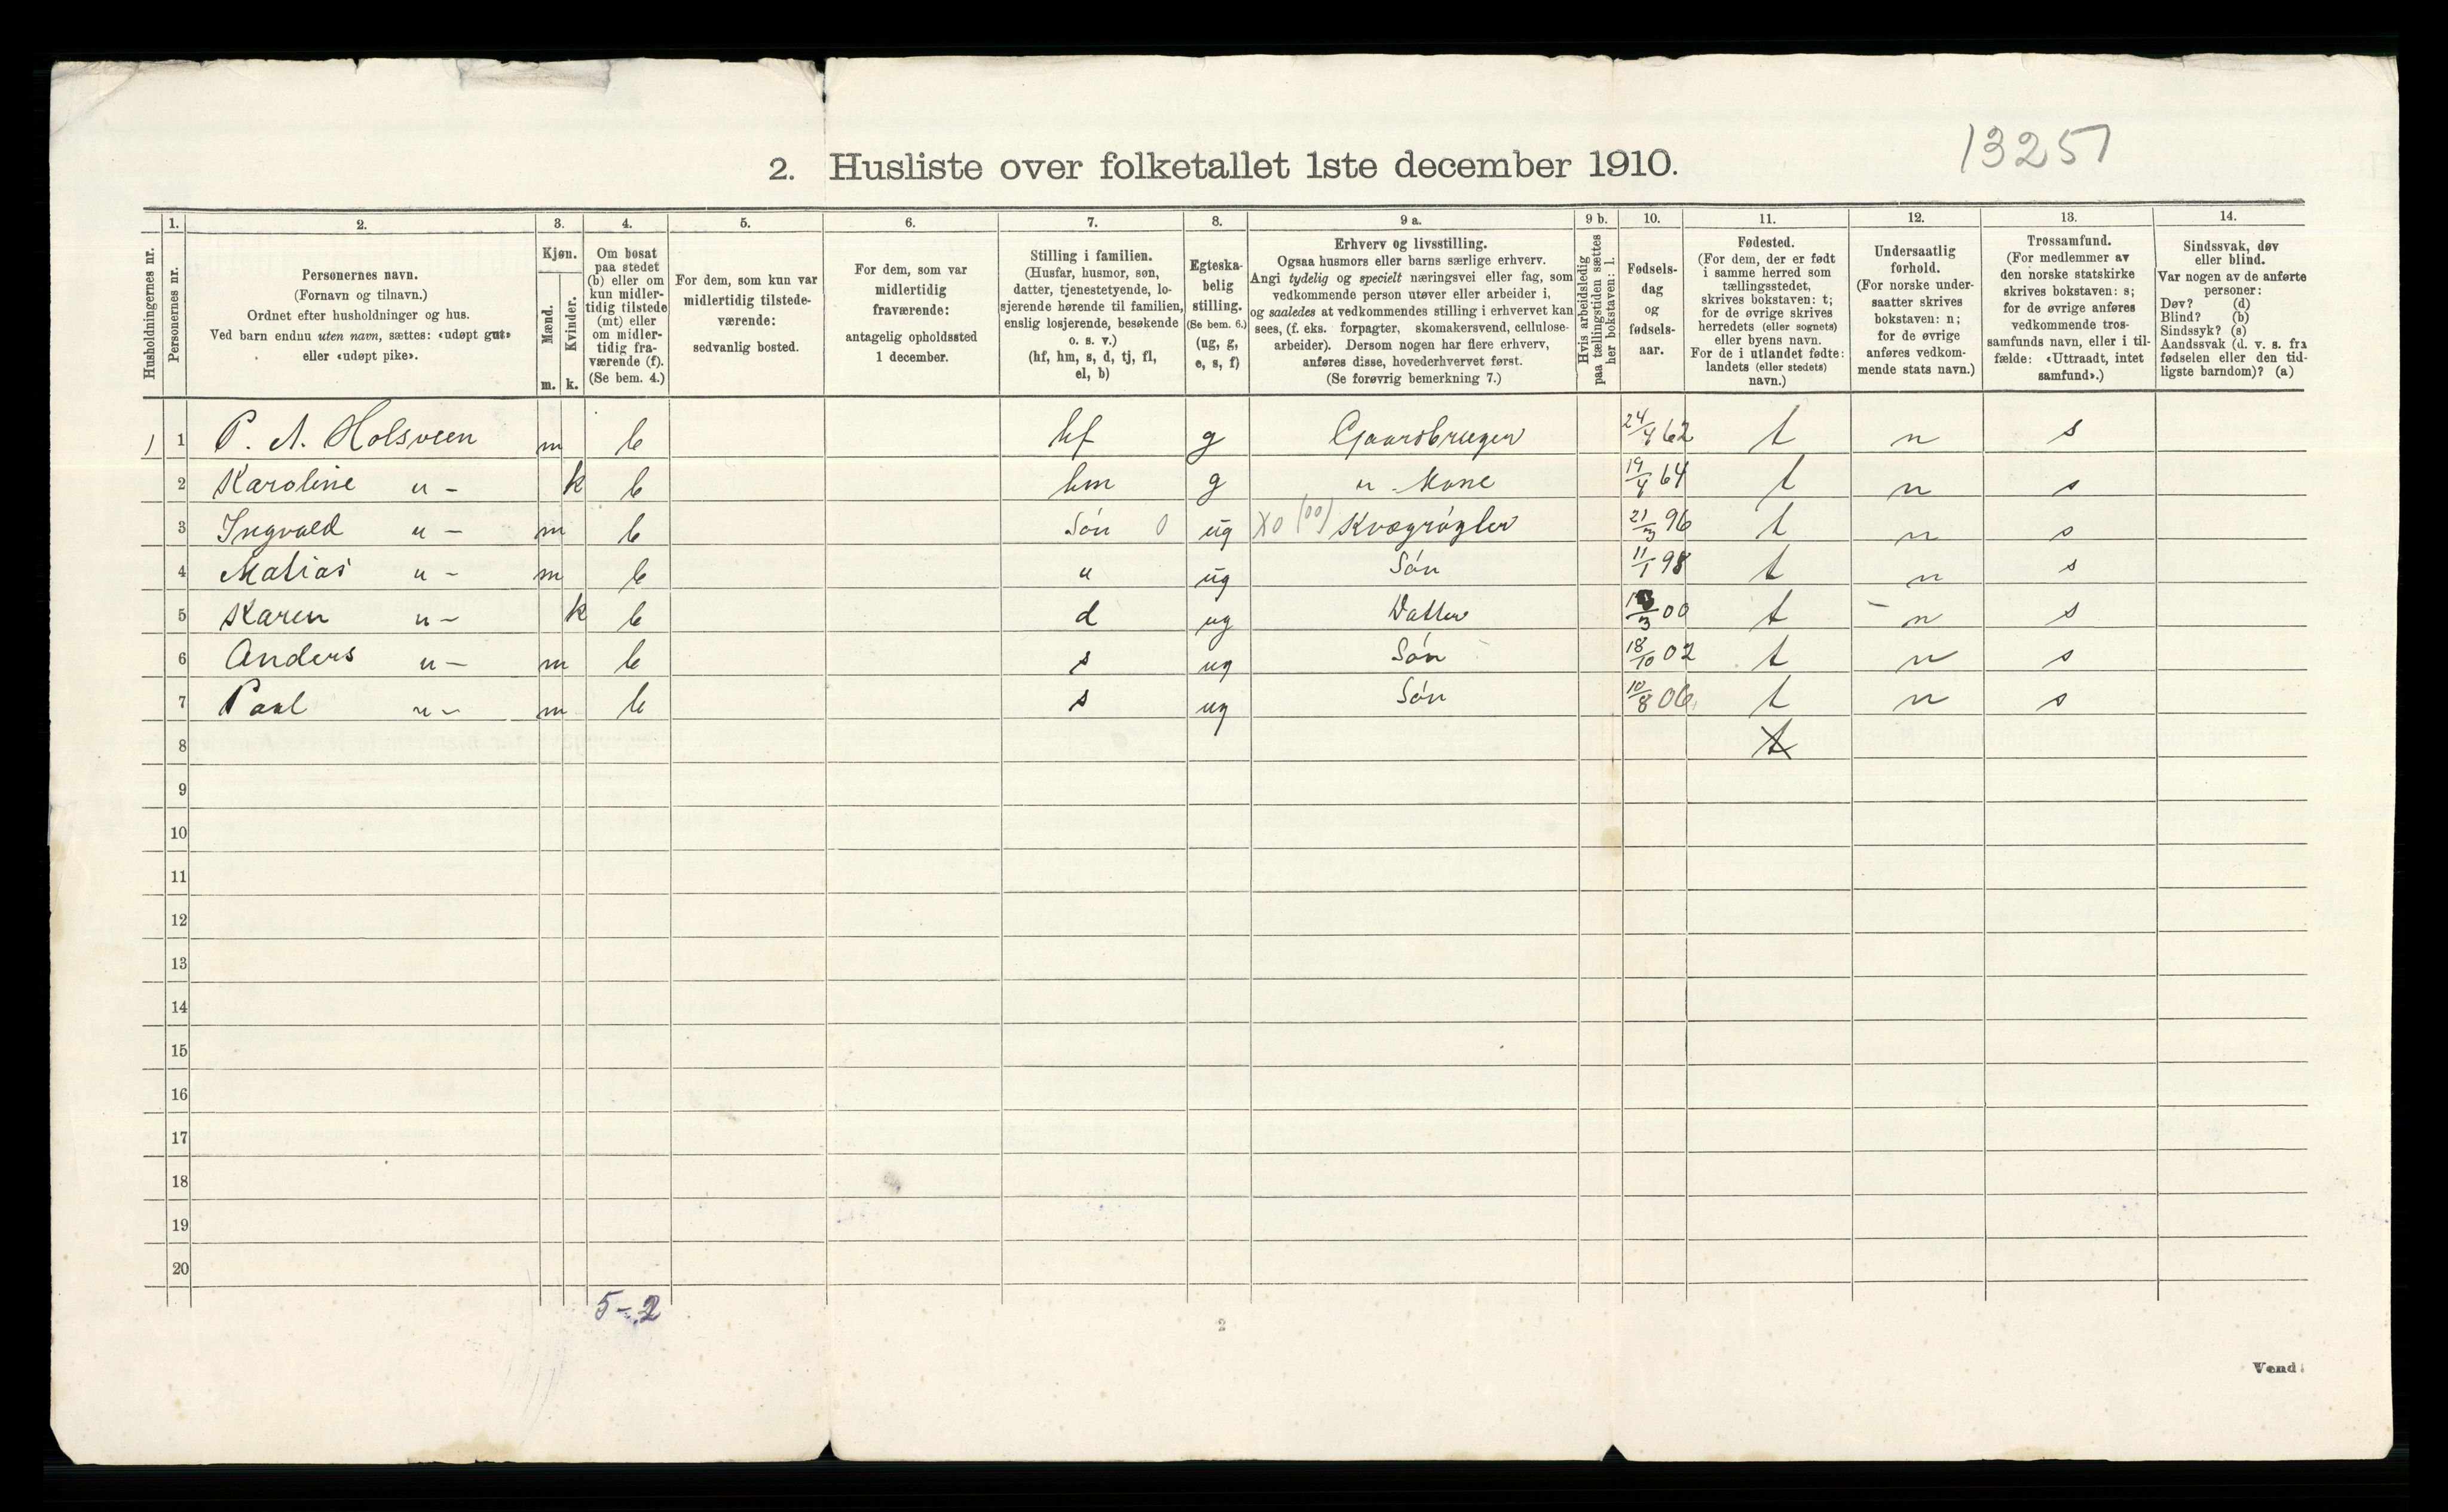 13257
2. Husliste over folketallet 1ste december 1910.
Husholdningernes nr.
1. Personernes nr.
2. Personernes navn.
(Fornavn og tilnavn.)
Ordnet efter husholdninger og hus.
Ved barn endnu uten navn, sættes: «udøpt gut»
eller «udøpt pike».
3. Kjøn.
Mænd. m.
Kvinder. k.
4. Om bosat
paa stedet
(b) eller om
kun midler-
tidig tilstede
(mt) eller
om midler-
tidig fra-
værende (f).
(Se bem. 4.)
5. For dem, som kun var
midlertidig tilstede-
værende:
sedvanlig bosted.
6. For dem, som var
midlertidig
fraværende:
antagelig opholdssted
1 december.
7. Stilling i familien.
(Husfar, husmor, søn,
datter, tjenestetyende, lo-
sjerende hørende til familien,
enslig losjerende, besøkende
o. s. v.)
(hf, hm, s, d, tj, fl,
el, b)
8. Egteska-
belig
stilling.
(Se bem. 6.)
(ug, g,
e, s, f)
9 a. Erhverv og livsstilling.
Ogsaa husmors eller barns særlige erhverv.
Angi tydelig og specielt næringsvei eller fag, som
vedkommende person utøver eller arbeider i,
og saaledes at vedkommendes stilling i erhvervet kan
sees, (f. eks. forpagter, skomakersvend, cellulose-
arbeider). Dersom nogen har flere erhverv,
anføres disse, hovederhvervet først.
(Se forøvrig bemerkning 7.)
9 b. Hvis arbeidsledig
paa tællingstiden sættes
her bokstaven: l.
10. Fødsels-
dag
og
fødsels-
aar.
11. Fødested.
(For dem, der er født
i samme herred som
tællingsstedet,
skrives bokstaven: t;
for de øvrige skrives
herredets (eller sognets)
eller byens navn.
For de i utlandet fødte:
landets (eller stedets)
navn.)
12. Undersaatlig
forhold.
(For norske under-
saatter skrives
bokstaven: n;
for de øvrige
anføres vedkom-
mende stats navn.)
13. Trossamfund.
(For medlemmer av
den norske statskirke
skrives bokstaven: s;
for de øvrige anføres
vedkommende tros-
samfunds navn, eller i til-
fælde: «Uttraadt, intet
samfund».)
14. Sindssvak, døv
eller blind.
Var nogen av de anførte
personer:
Døv? (d)
Blind? (b)
Sindssyk? (s)
Aandssvak (d. v. s. fra
fødselen eller den tid-
ligste barndom)? (a)
1 1 P. A. Holsveen m b hf g Gaardbruger 24/4 62 t n s
2 Karoline u - k b hm g u Kone 19/4 64 t n s
3 Ingvald u - m b Søn 0 ug X0 (00) Kvægrøgter 21/3 96 t n s
4 Matias u - m b u ug Søn 11/1 98 t n s
5 Karen u - k b d ug Datter /3 00 t - n s
6 Anders u - m b s ug Søn 18/10 02 t n s
7 Paul u - m b s ug Søn 10/8 06 t n s
8 t
9
10
11
12
13
14
15
16
17
18
19
20
5-2
2
Vend!